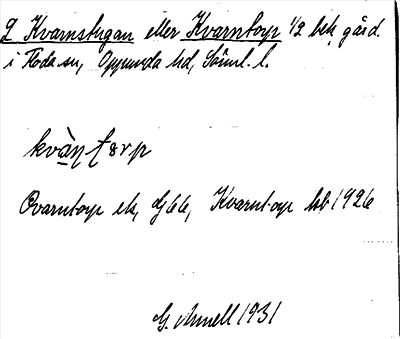 2 Kvarnstugan eller Kvarntorp 1/2 bek. gård.
i Floda sn, Oppunda hd, Söml. l.
kvà̤ɳ tɵrp
Qvarntorp ek, Kvarntorp hsb 1926
G. Annell 1931